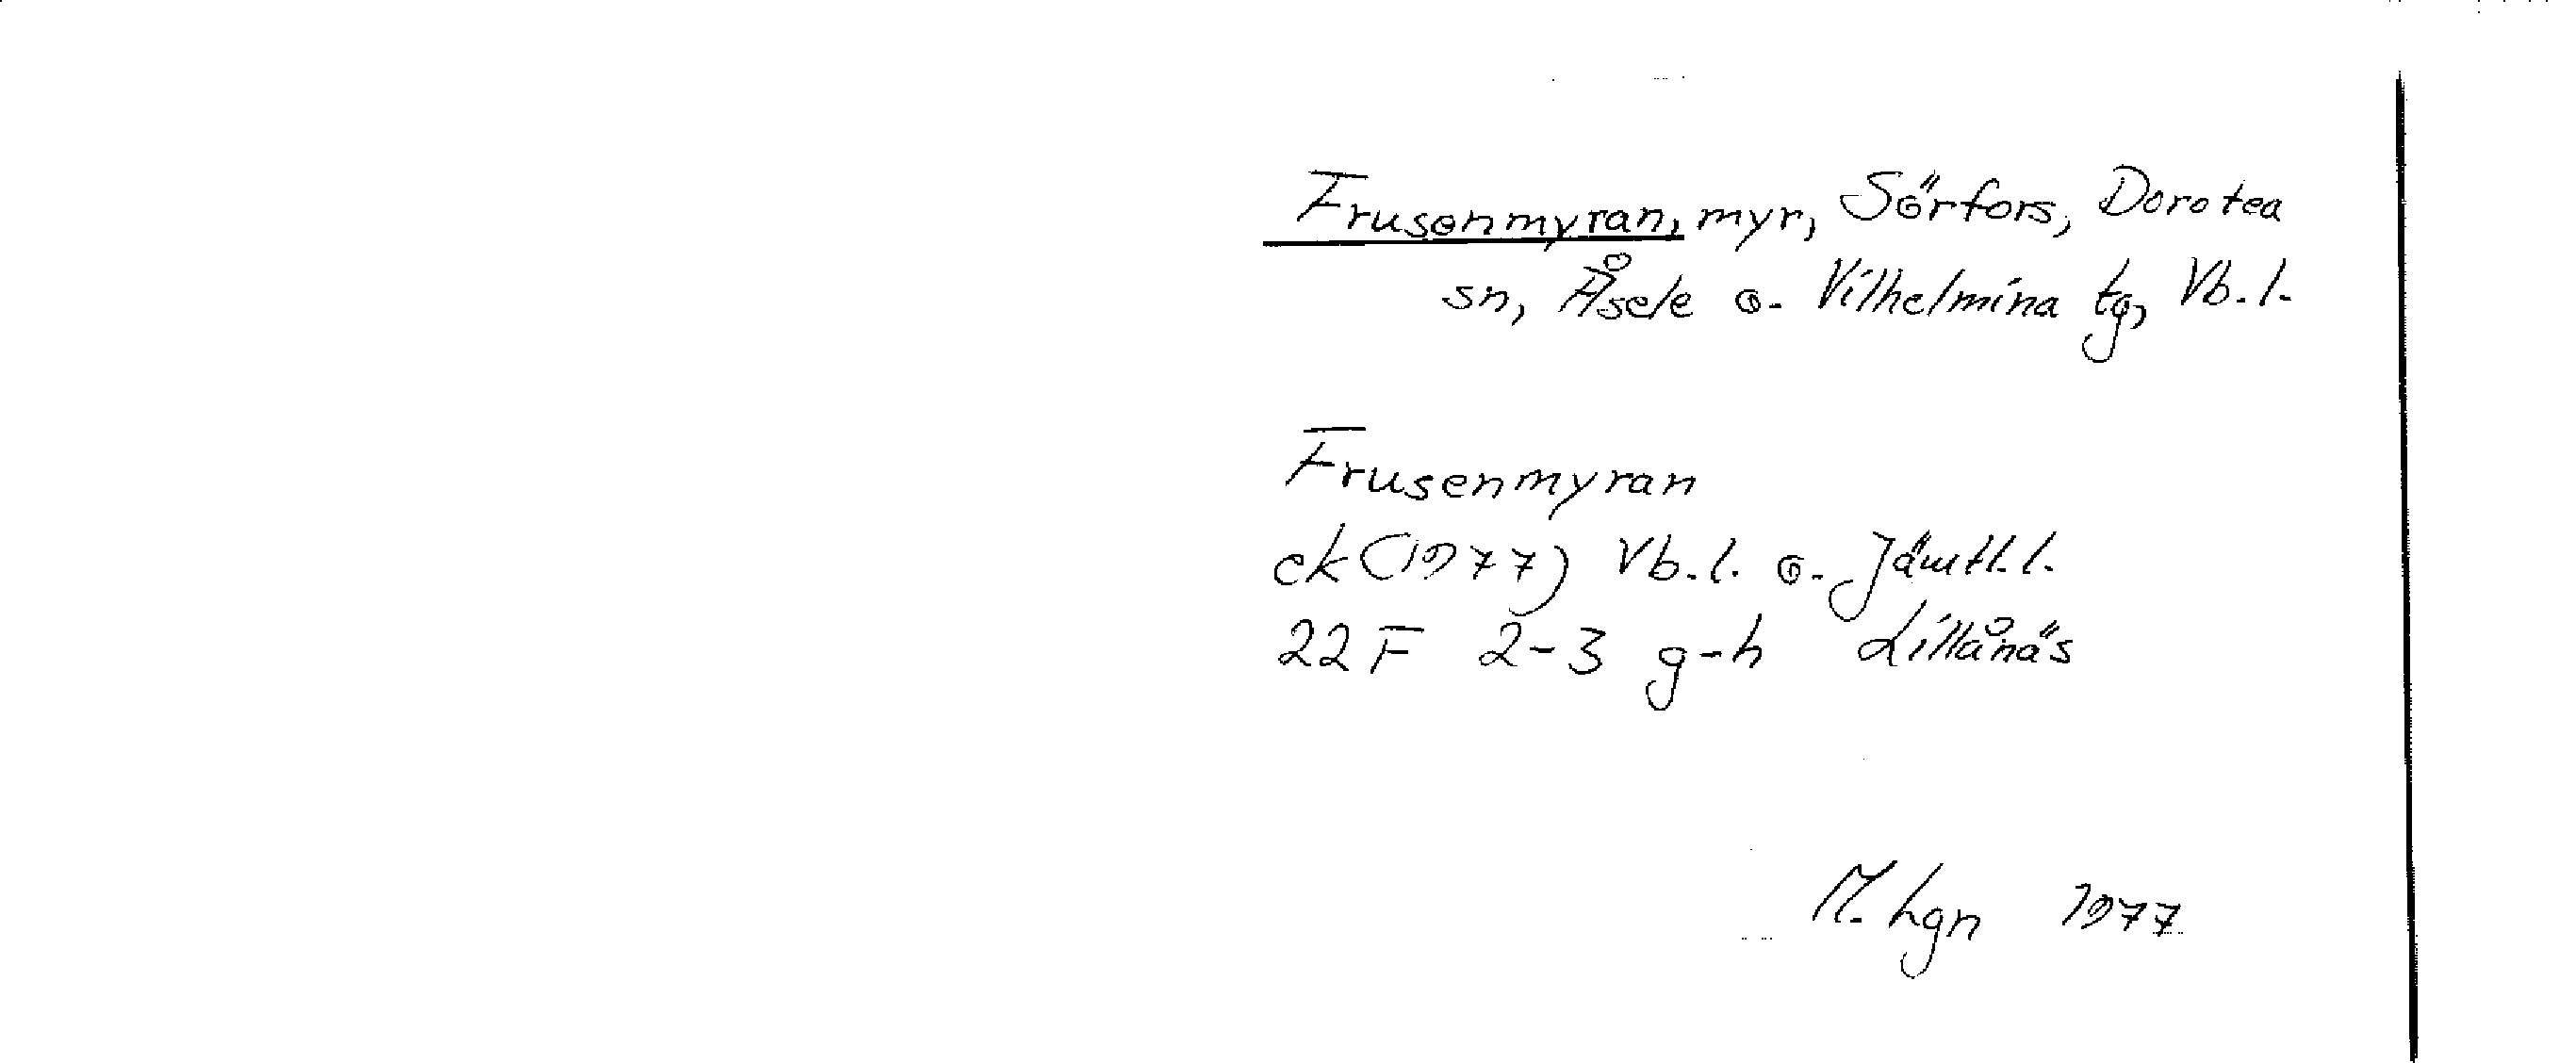 Frusenmyran, myr, Sörfors, Dorotea
sn, Åsele o. Vilhelmina tg, Vb. l.
Frusenmyran
ek (1977) Vb. l. o. Jämtl. l.
22 F 2-3 g-h Lillånäs
M. hgn 1977